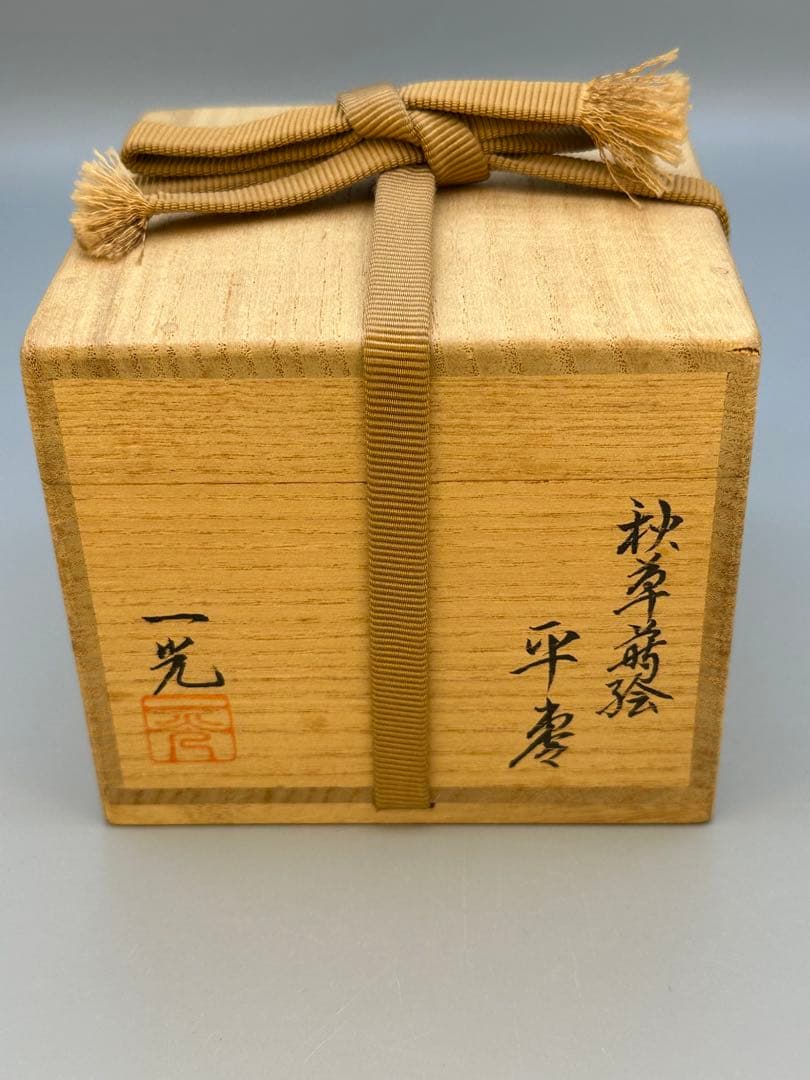 秋草蒔絵
平棗
一光
一光